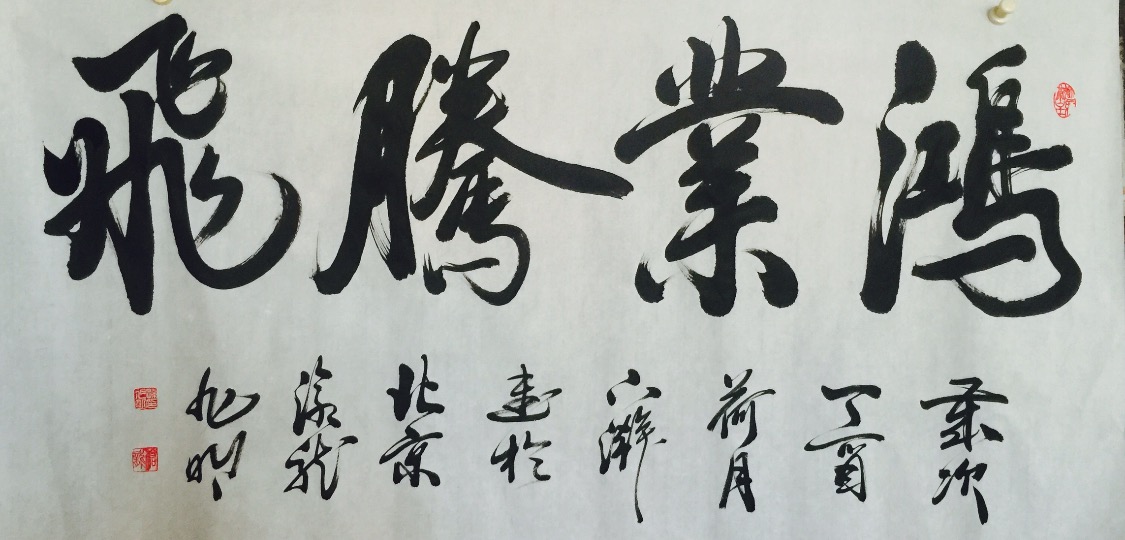 鴻業騰飛
歲次
丁酉
荷月
書於
北京
旭明